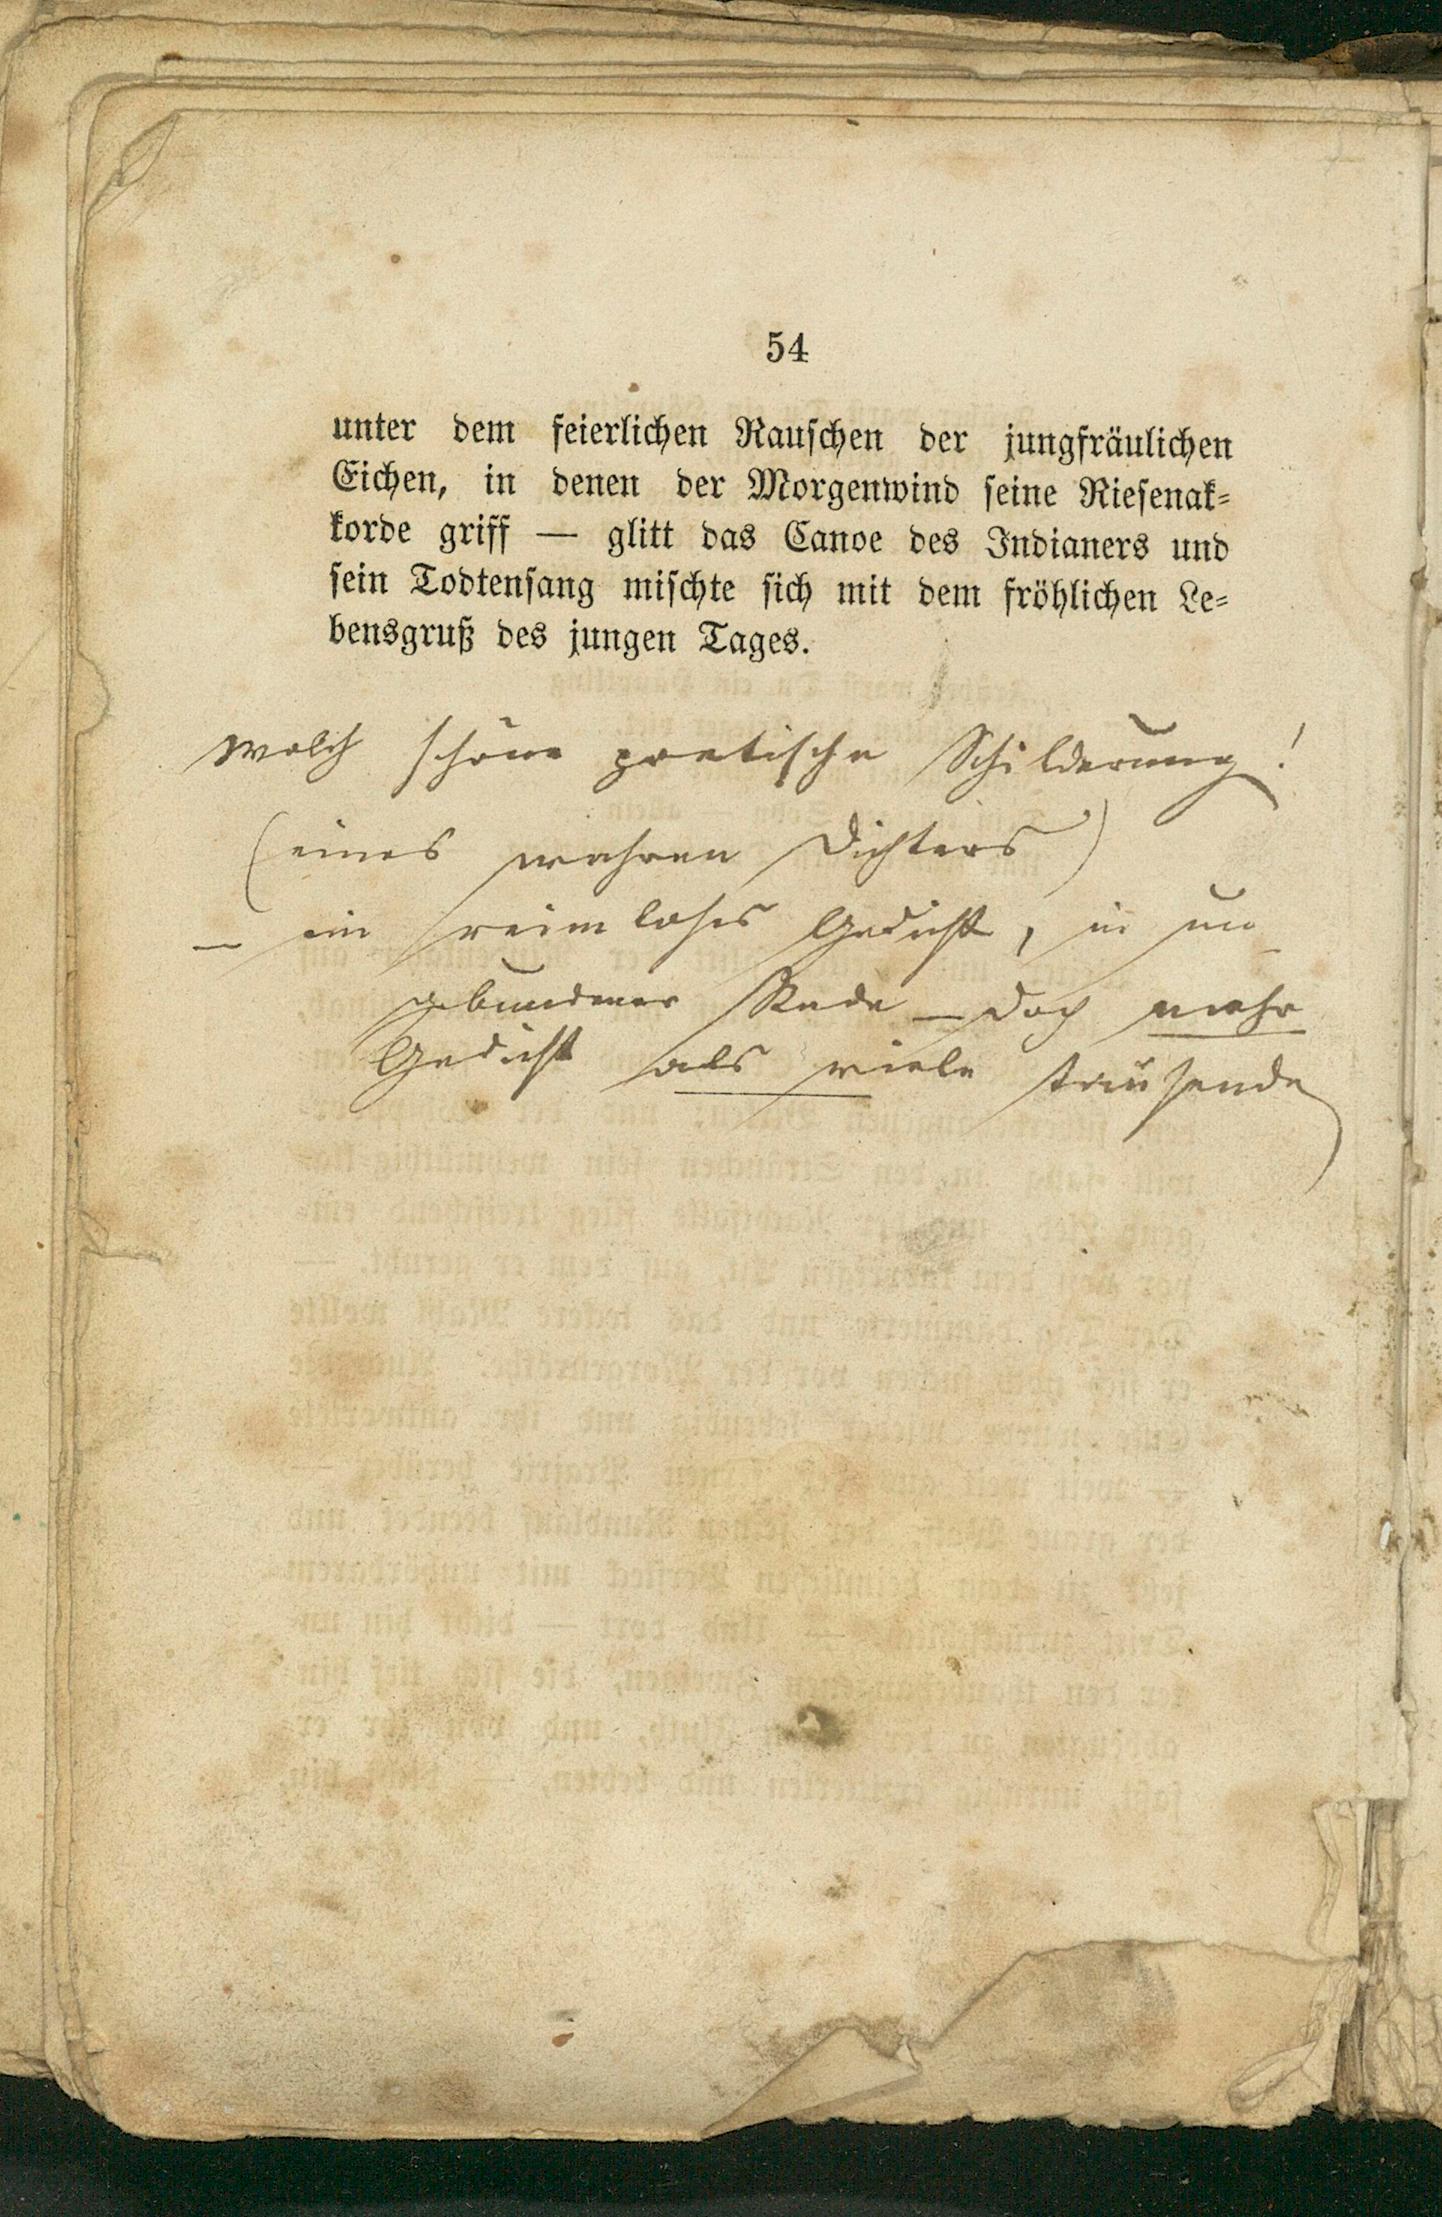 54
unter dem feierlichen Rauschen der jungfräulichen
Eichen, in denen der Morgenwind seine Riesenak-
korde griff — glitt das Canoe des Indianers und
sein Todtensang mischte sich mit dem fröhlichen Le-
bensgruß des jungen Tages.
Welch schöne poetische Schilderung!
(eines wahren Dichters)
— ein reimloses Gedicht, in un-
gebundener Rede — doch mehr
Gedicht als viele tausende